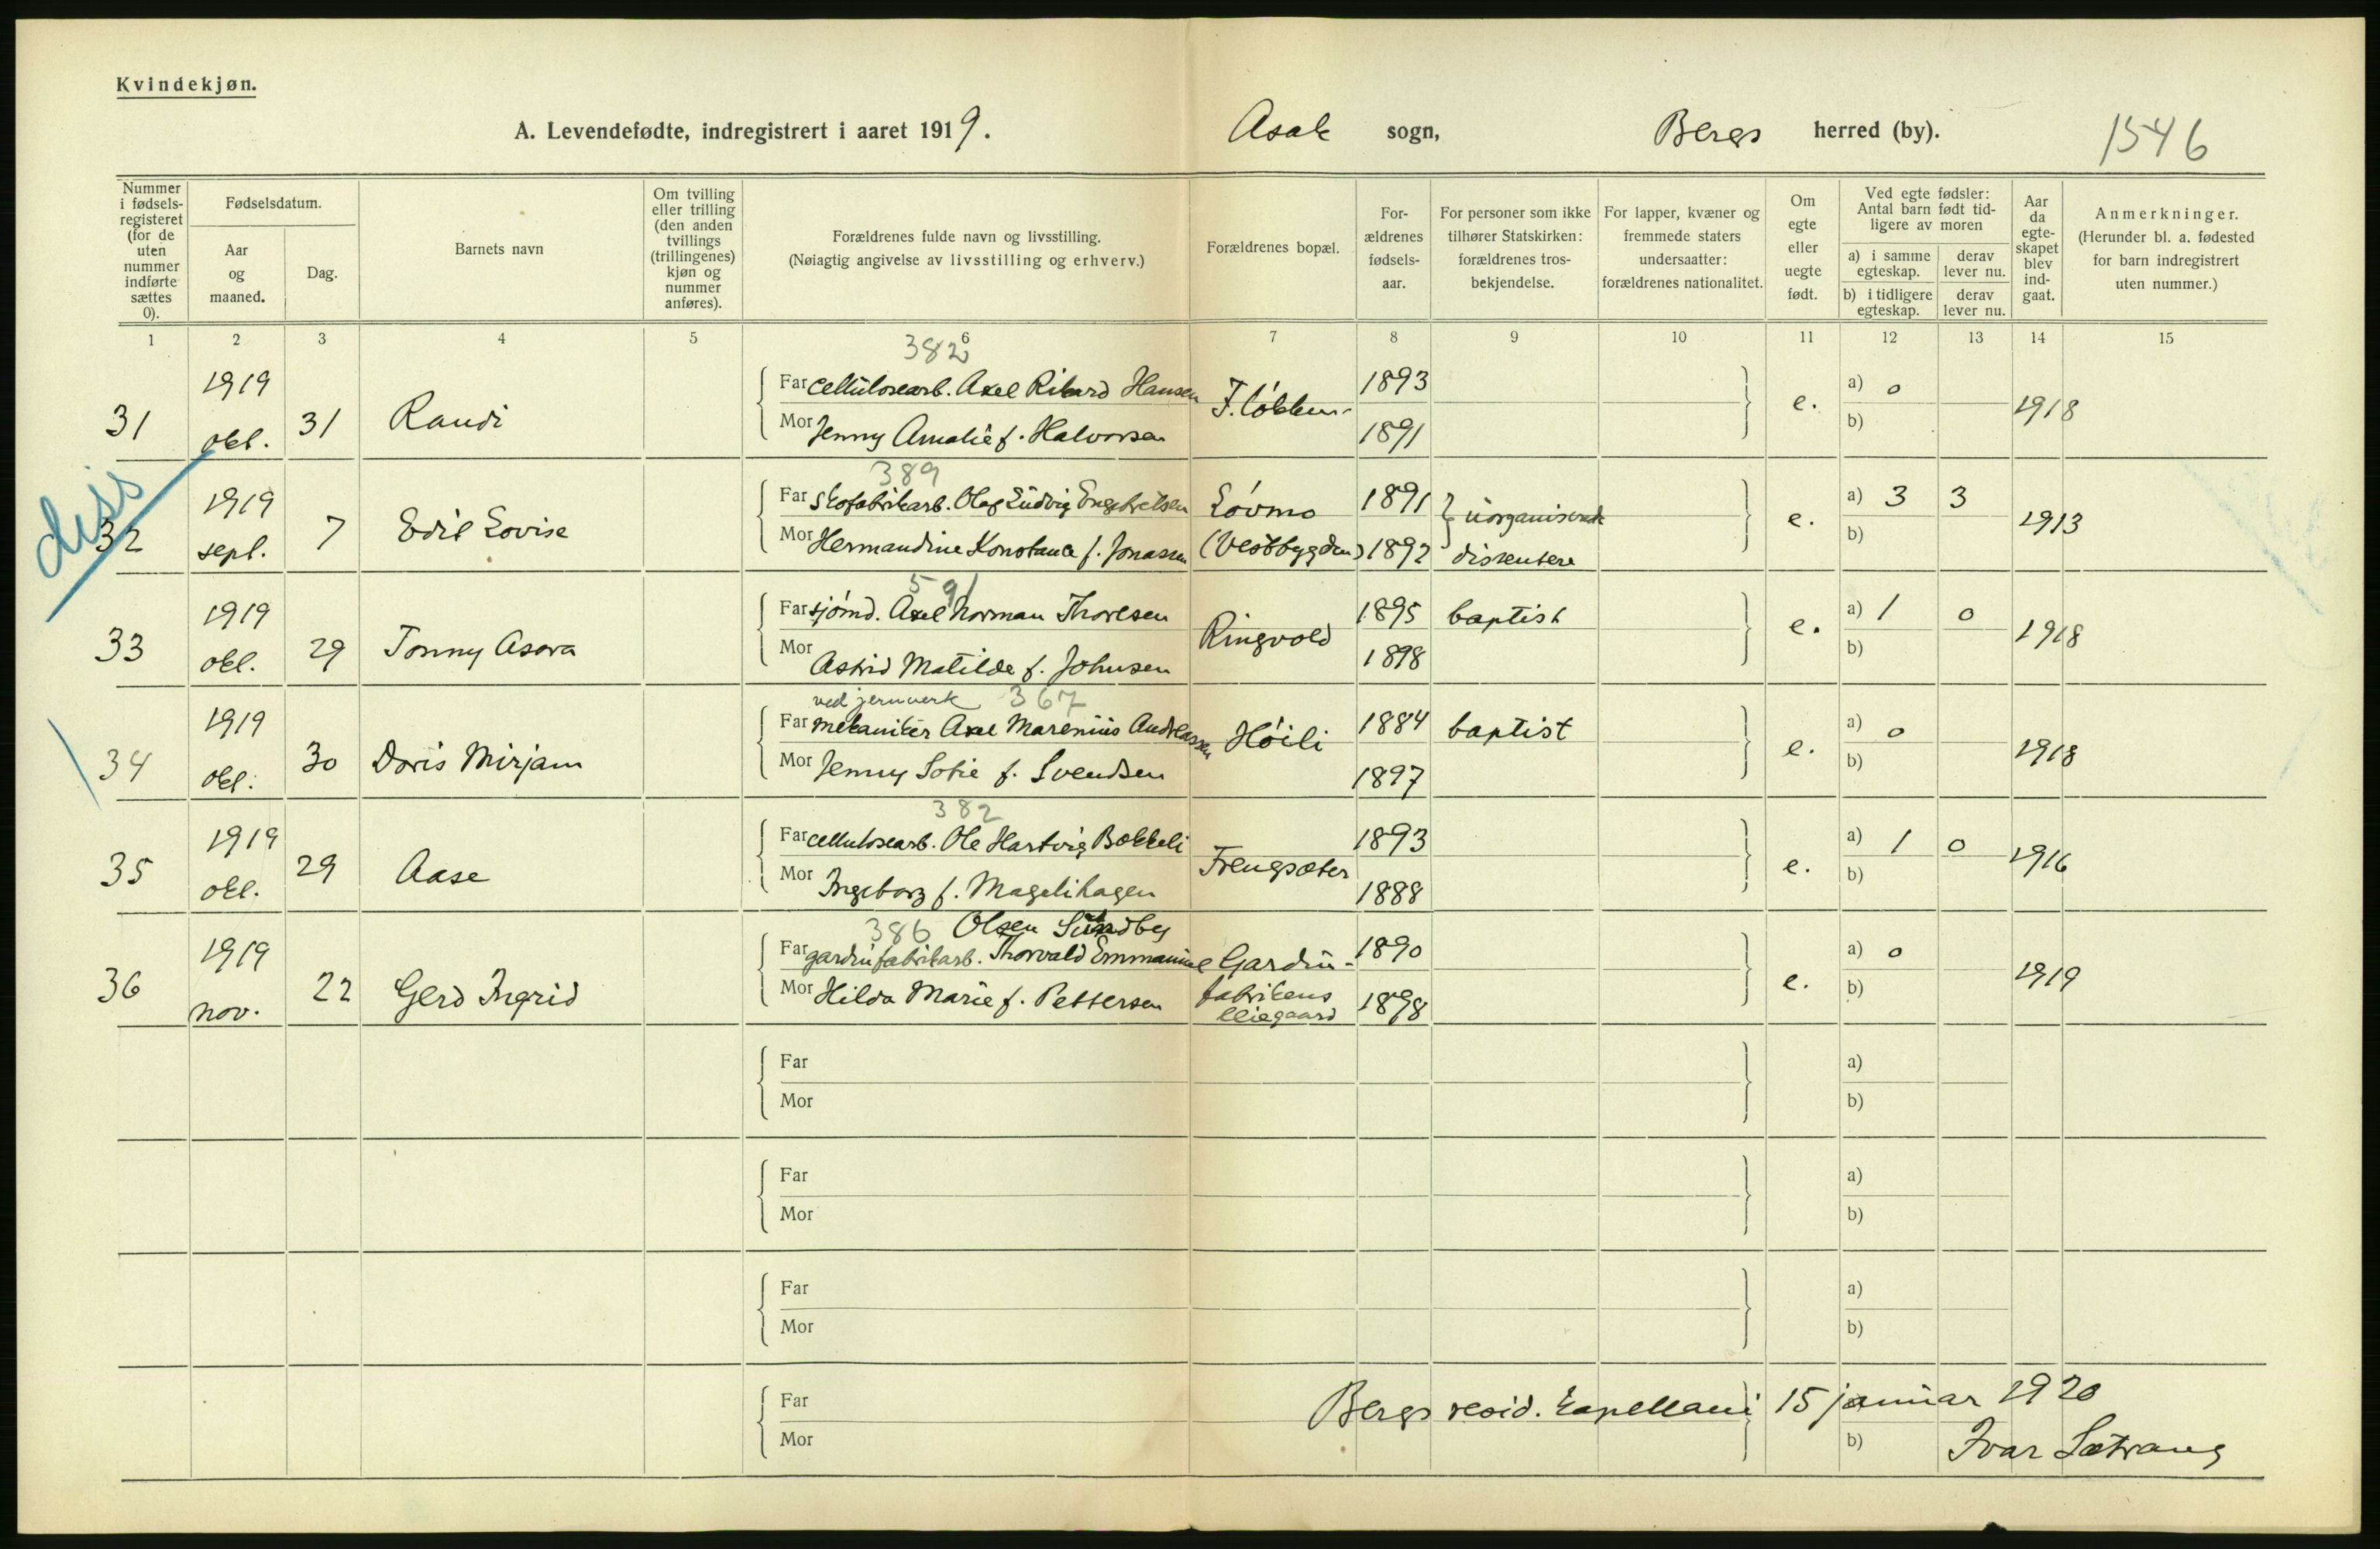 Kvindekjøn.
A. Levendefødte, indregistrert i aaret 1919. Asak sogn, Bergs herred (by). 1546
Nummer i fødsels-registeret (for de uten nummer indførte sættes 0).
Fødselsdatum.
Aar og maaned.
Dag.
Barnets navn
Om tvilling eller trilling (den anden tvillings (trillingenes) kjøn og nummer anføres).
Forældrenes fulde navn og livsstilling.
(Nøiagtig angivelse av livsstilling og erhverv.)
Forældrenes bopæl.
For-ældrenes fødsels-aar.
For personer som ikke tilhører Statskirken: forældrenes tros-bekjendelse.
For lapper, kvæner og fremmede staters undersaatter: forældrenes nationalitet.
Om egte eller uegte født.
Ved egte fødsler: Antal barn født tid-ligere av moren
a) i samme egteskap. derav lever nu.
b) i tidligere egteskap. derav lever nu.
Aar da egte-skapet blev ind-gaat.
Anmerkninger.
(Herunder bl. a. fødested for barn indregistrert uten nummer.)
1 2 3 4 5 6 7 8 9 10 11 12 13 14 15
382
31 1919 okt. 31 Randi
Far cellulosearb. Axel Rikard Hansen F. løkken 1893 e. a) 0 1918
Mor Jenny Amalie f. Halvorsen 1891 b)
diss
389
32 1919 sept. 7 Edit Lovise
Far skofabrikarb. Olaf Ludvig Engebretsen Løvmo 1891 uorganiserte e. a) 3 3 1913
Mor Hermandine Konstance f. Jonassen (Vestbygden) 1892 dissentere b)
591
33 1919 okt. 29 Tonny Asora
Far sjømd. Axel Norman Thoresen Ringvold 1895 baptist e. a) 1 0 1918
Mor Astrid Matilde f. Johnsen 1898 b)
ved jernverk 367
34 1919 okt. 30 Doris Mirjam
Far mekaniker Axel Marenius Andreassen Høili 1884 baptist e. a) 0 1918
Mor Jenny Sofie f. Svendsen 1897 b)
382
35 1919 okt. 29 Aase
Far cellulosearb. Ole Hartvig Bakkeli Frengsæter 1893 e. a) 1 0 1916
Mor Ingeborg f. Magelihagen 1888 b)
386 Olsen Sundby
36 1919 nov. 22 Gerd Ingrid
Far gardinfabrikarb. Thorvald Emmanuel Gardin- 1890 e. a) 0 1919
Mor Hilda Marie f. Pettersen fabrikens leiegaard 1898 b)
Far a)
Mor b)
Far a)
Mor b)
Far a)
Mor b)
Far Bergs resid. kapellani 15 januar 1920
Mor b) Ivar Sætrang